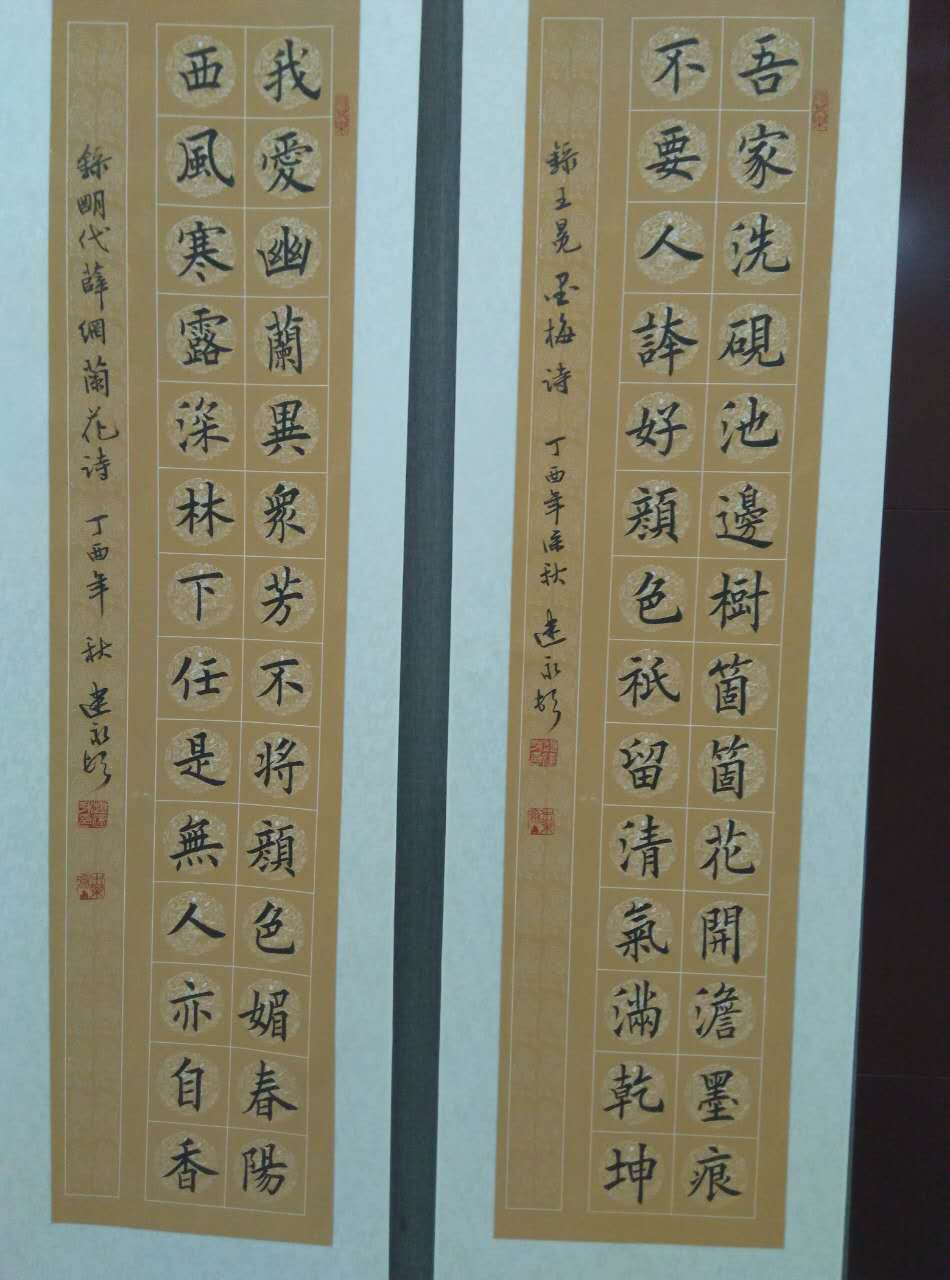 吾家洗硯池邊樹箇箇花開澹墨痕
不要人誇好顔色祇留清氣滿乾坤
錄王冕墨梅诗 丁酉年深秋 建永书
我愛幽蘭異衆芳不將顔色媚春陽
西風寒露深林下任是無人亦自香
錄明代薛網蘭花诗 丁酉年 秋 建永书